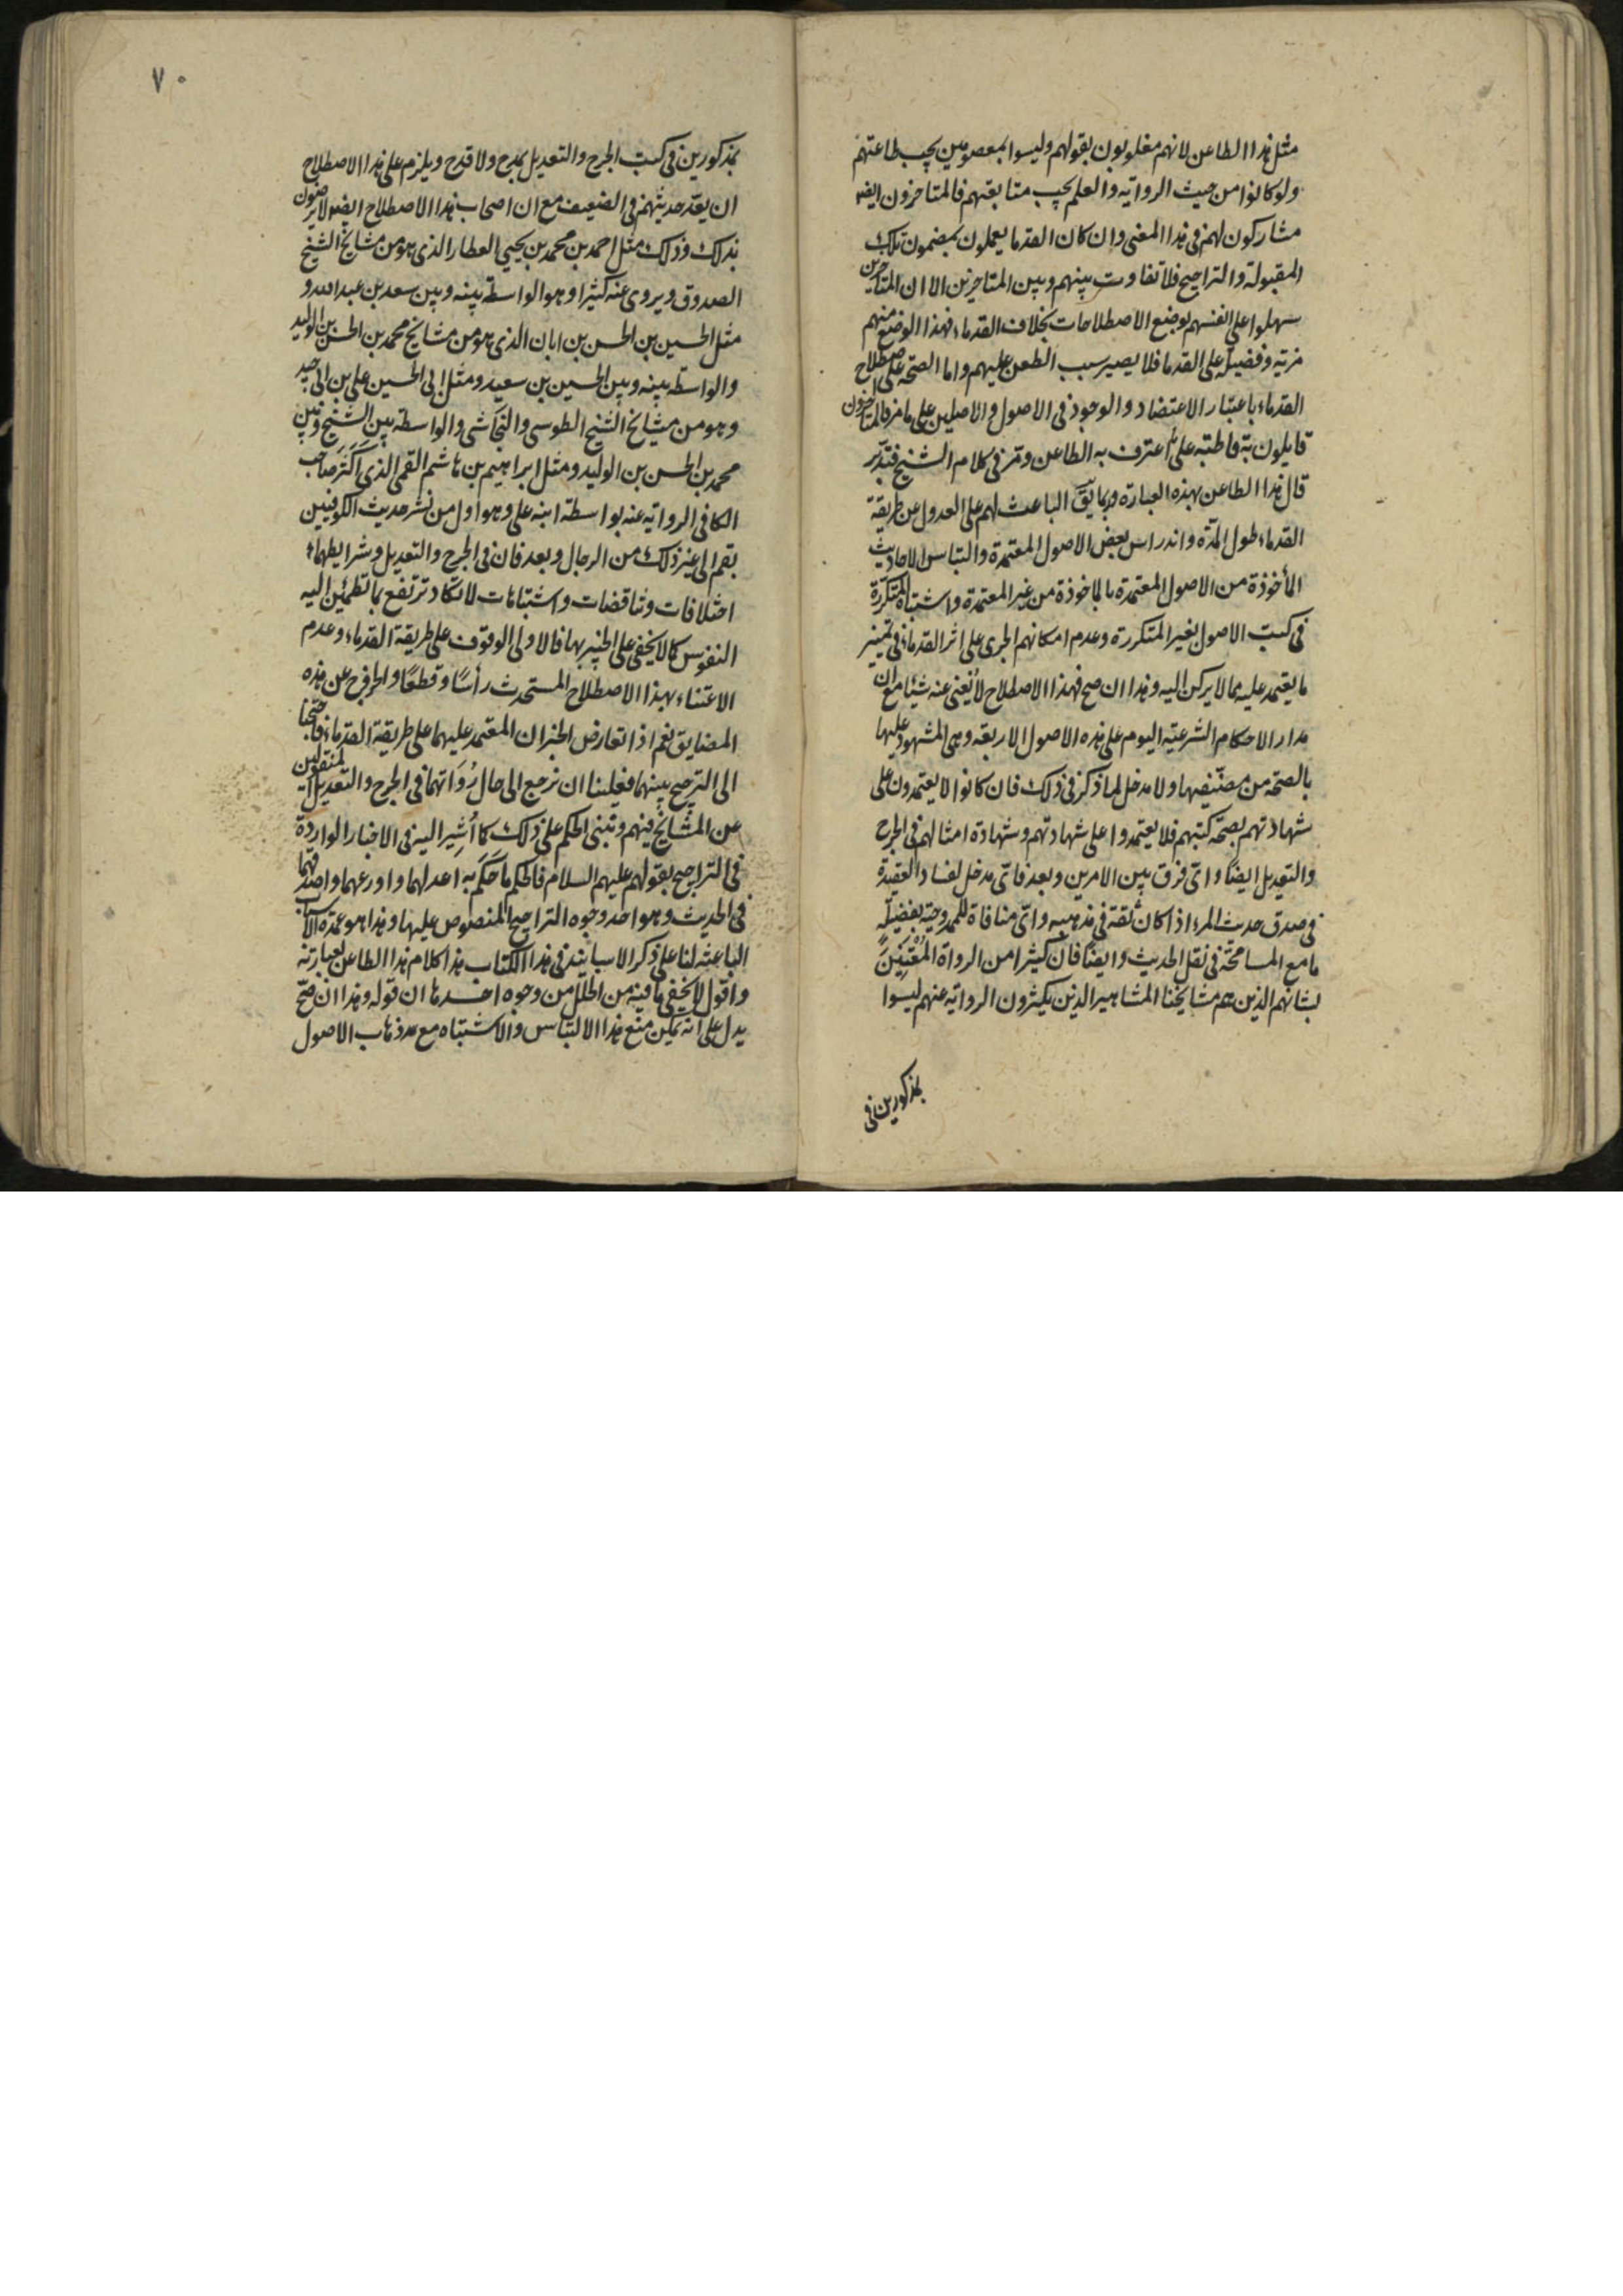 مثل هذا الطاعن لانهم مغلوبون بقولهم وليسوا بمعصومين يجب طاعتهم
ولو كانوا من حيث الرواية والعلم يجب متابعتهم فالمتاخرون ايضا
مشاركون لهم فى هذا المعنى وان كان القدما يعملون بمضمون تلك
المقبولة والتراجيح فلا تفاوت بينهم وبين المتاخرين الا ان المتاخرين
سهلوا على انفسهم بوضع الاصطلاحات بخلاف القدماء فهذا الوضع منهم
مزية وفضيلة على القدما فلا يصير سبب الطعن عليهم واما الصحة على اصطلاح
القدماء باعتبار الاعتضاد والوجود فى الاصول والاصلين على ما مر فالمتاخرون
قايلون به قاطبة على ما اعترف به الطاعن ومر فى كلام الشيخ فتدبر
قال هذا الطاعن بهذه العبارة وربما يق الباعث لهم على العدول عن طريقة
القدماء طول المدة واندراس بعض الاصول المعتمدة والتباس الاحاديث
المأخوذة من الاصول المعتمدة بالماخوذة من غير المعتمدة واشتباه المتكررة
فى كتب الاصول بغير المتكررة وعدم امكانهم الجرى على اثر القدماء فى تمييز
ما يعتمد عليه مما لا يركن اليه وهذا ان صح فهذا الاصطلاح لا يغنى عنه شيئا مع ان
مدار الاحكام الشرعية اليوم على هذه الاصول الاربعة وهى المشهود عليها
بالصحة من مصنفيها ولا مدخل لما ذكر فى ذلك فان كانوا لا يعتمدون على
شهادتهم بصحة كتبهم فلا يعتمدوا على شهادتهم وشهادة امثالهم فى الجرح
والتعديل ايضا واى فرق بين الامرين وبعد فاى مدخل لفساد العقيدة
فى صدق حديث المرء اذا كان ثقة فى مذهبه واى منافاة للممدوحية بفضيلة
ما مع المسامحة فى نقل الحديث وايضا فان كثيرا من الرواة المعتنين
بشانهم الذين هم مشايخنا المشاهير الذين يكثرون الرواية عنهم ليسوا
بمذكورين فى
٧٠
بمذكورين فى كتب الجرح والتعديل بمدح ولا قدح ويلزم على هذا الاصطلاح
ان يعد حديثهم فى الضعيف مع ان اصحاب هذا الاصطلاح ايضا لا يرضون
بذلك وذلك مثل احمد بن محمد بن يحيى العطار الذى هو من مشايخ الشيخ
الصدوق ويروى عنه كثيرا وهو الواسطة بينه وبين سعد بن عبد الله و
مثل الحسين بن الحسن بن ابان الذى هو من مشايخ محمد بن الحسن بن الوليد
والواسطة بينه وبين الحسين بن سعيد ومثل ابى الحسين على بن ابى جيد
وهو من مشايخ الشيخ الطوسى والنجاشى والواسطة بين الشيخ وبين
محمد بن الحسن بن الوليد ومثل ابراهيم بن هاشم القمى الذى اكثر صاحب
الكافى الرواية عنه بواسطة ابنه على وهو اول من نشر حديث الكوفيين
بقم الى غير ذلك من الرجال وبعد فان فى الجرح والتعديل وشرايطهما
اختلافات وتناقضات واشتباهات لا تكاد ترتفع بما تطمئن اليه
النفوس كما لا يخفى على الخبير بها فالاولى الوقوف على طريقة القدماء وعدم
الاعتناء بهذا الاصطلاح المستحدث رأسا وقطعا والخروج عن هذه
المضايق نعم اذا تعارض الخبران المعتمد عليهما على طريقة القدماء فاحتجنا
الى الترجيح بينهما فعلينا ان نرجع الى حال رواتهما فى الجرح والتعديل المنقولين
عن المشايخ فيهم ونبنى الحكم على ذلك كما اشير اليه فى الاخبار الواردة
فى التراجيح بقولهم عليهم السلام فالحكم ما حكم به اعدلهما واورعهما واصدقهما
فى الحديث وهو احد وجوه التراجيح المنصوص عليها وهذا هو عمدة الاسباب
الباعثة لنا على ذكر الاسانيد فى هذا الكتاب هذا كلام هذا الطاعن بعبارته
واقول لا يخفى ما فيه من الخلل من وجوه احدها ان قوله وهذا ان صح
يدل على انه يمكن منع هذا الالتباس والاشتباه مع ذهاب الاصول